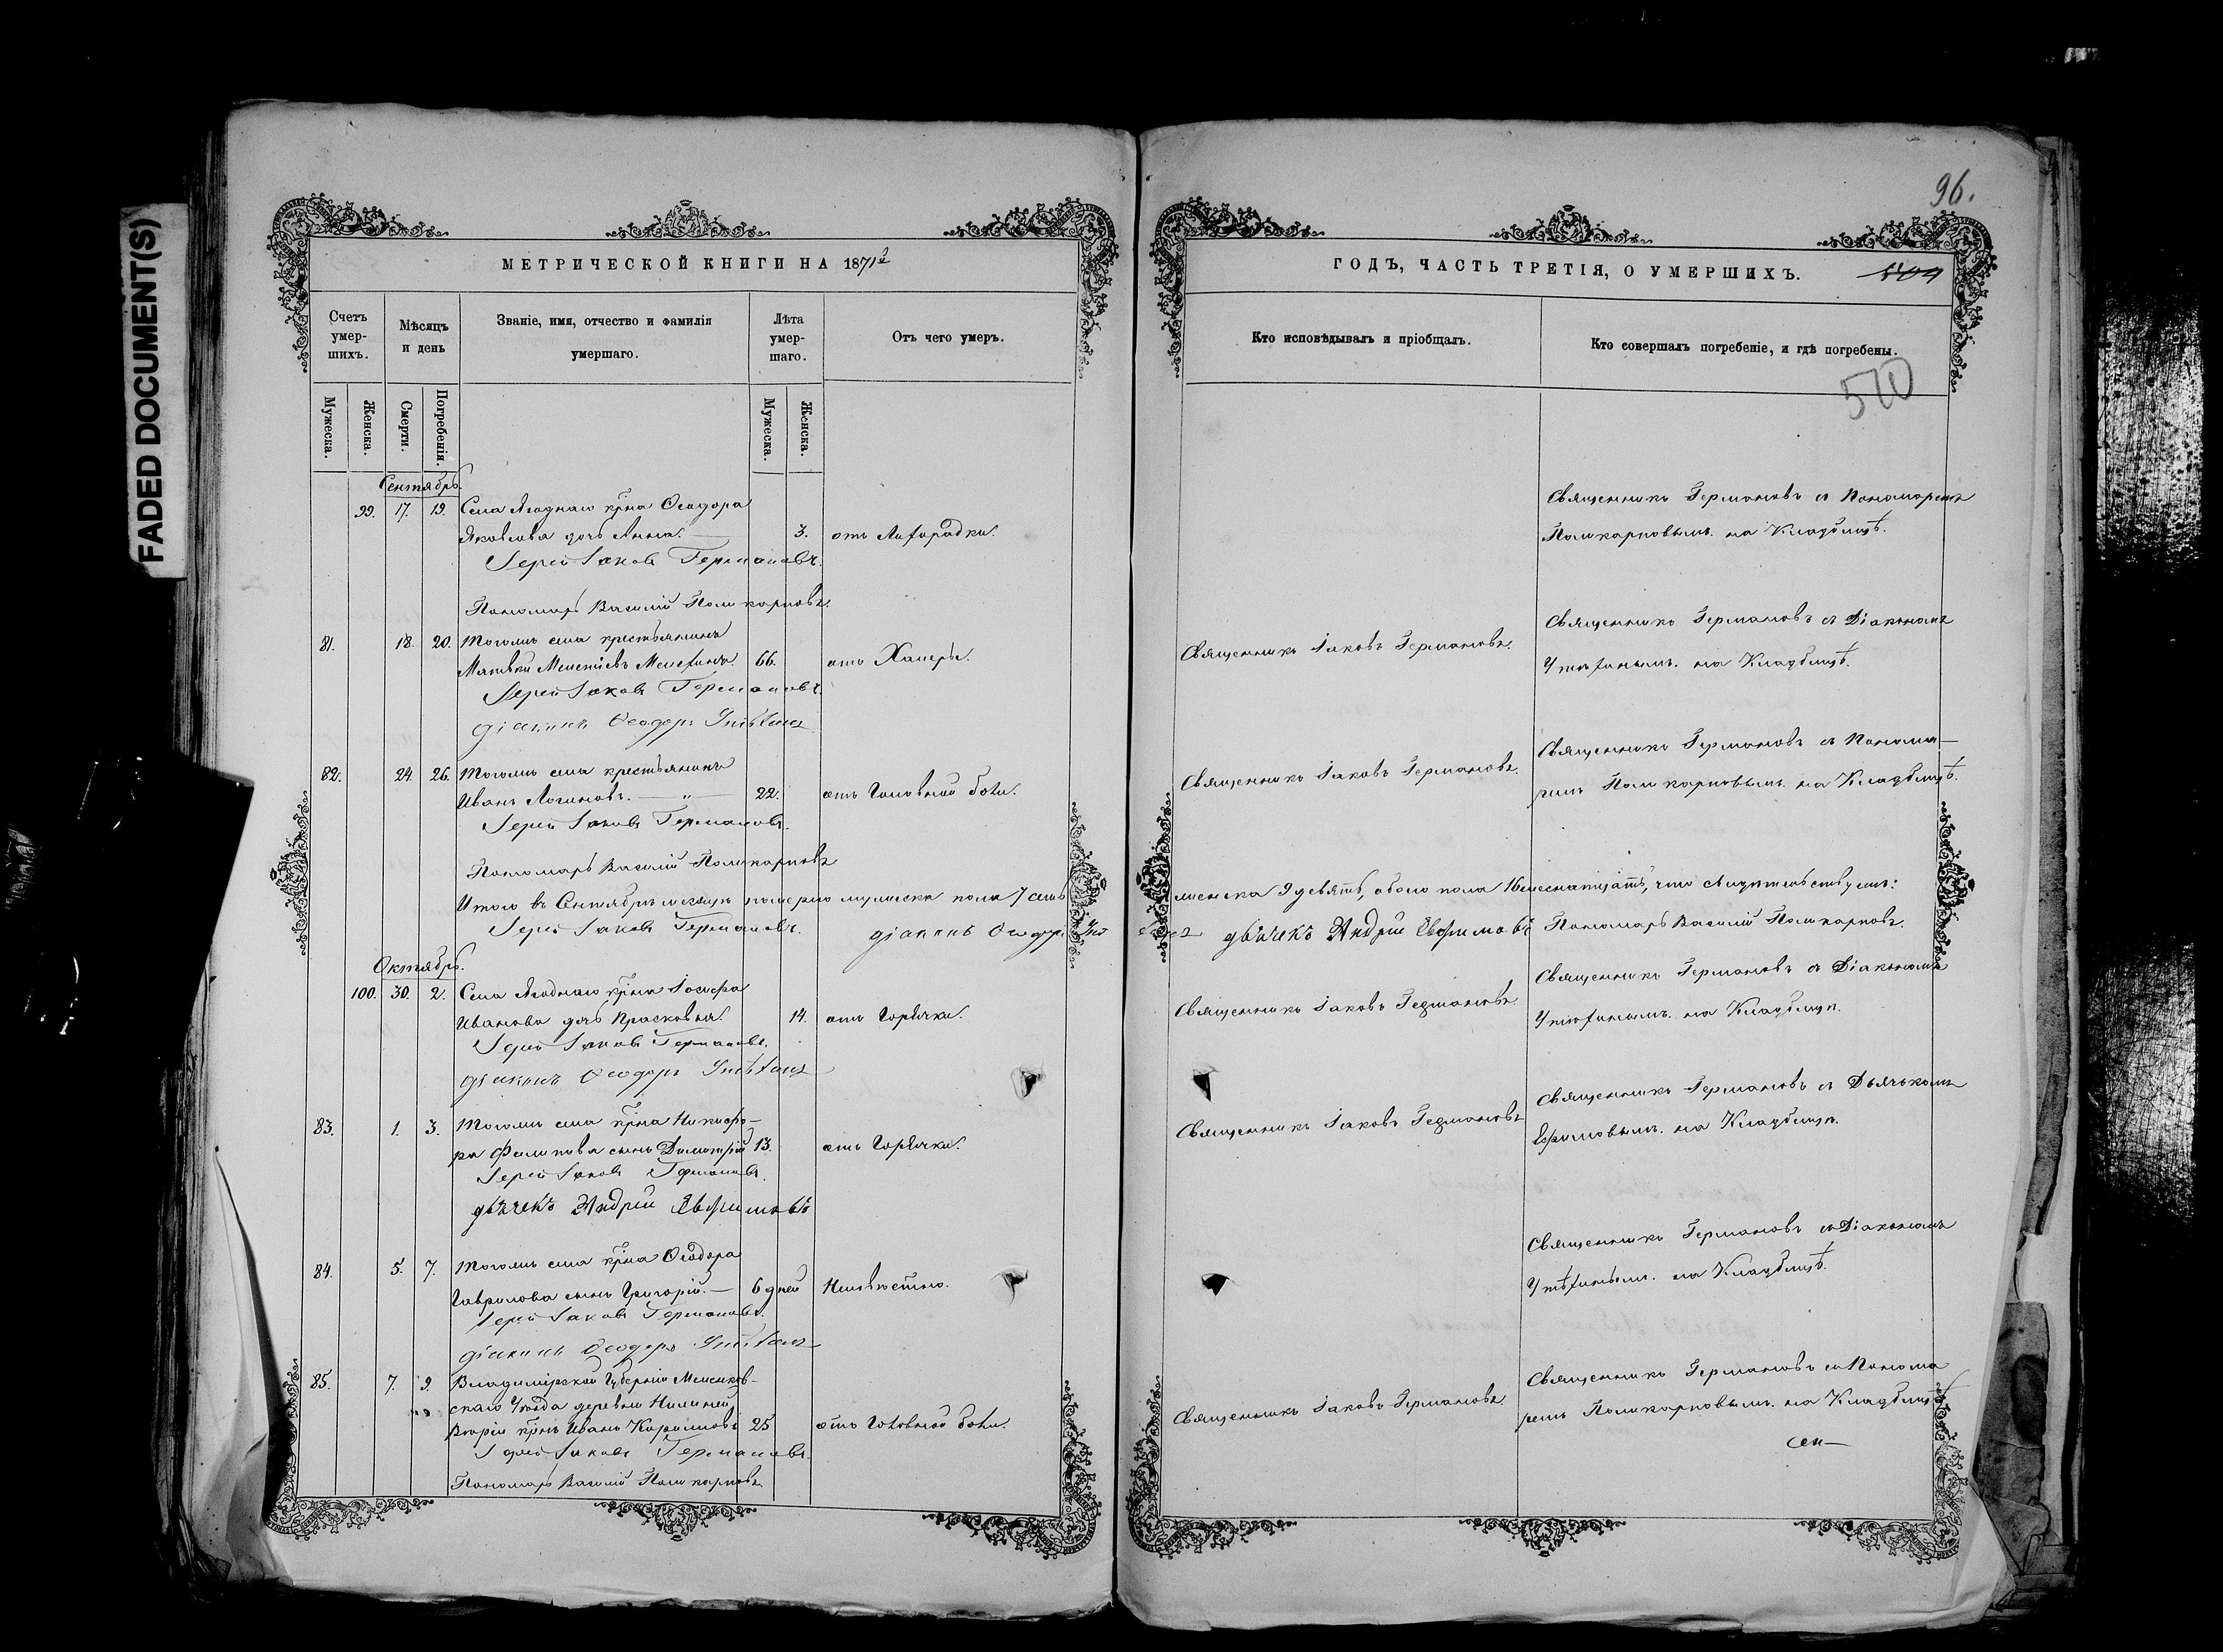 FADED DOCUMENT(S)
МЕТРИЧЕСКОЙ КНИГИ НА 1871й
Счетъ умер-шихъ.
Мѣсяцъ и день
Званіе, имя, отчество и фамилія умершаго.
Лѣта умер-шаго.
Отъ чего умеръ.
Мужеска.
Женска.
Смерти.
Погребенія.
Мужеска.
Женска.
Сентябрь.
99. 17. 19. Села Ягоднаго крн̃а Ѳеодора
Яковлева дочь Анна. 3. отъ Лихорадки.
Іерей Іаковъ Германовъ.
Пономарь Василій Поликарповъ.
81. 18. 20. Тогожъ села крестьянинъ
66. отъ Холеры.
Іерей Іаковъ Германовъ.
діаконъ Ѳеодоръ Утѣхинъ
82. 24. 26. Тогожъ села крестьянинъ
Иванъ Логиновъ. — 22. отъ Головной боли.
Іерей Іаковъ Германовъ.
Пономарь Василій Поликарповъ
Итого въ Сентябрѣ мѣсяцѣ померло мужеска пола 7 семь
Іерей Іаковъ Германовъ. діаконъ Ѳеодоръ Утѣ
Октябрь.
100. 30. 2. Села Ягоднаго крн̃а Іосифа
Иванова дочь Прасковья. 14. отъ Горячки.
Іерей Іаковъ Германовъ.
діаконъ Ѳеодоръ Утѣхинъ
83. 1. 3. Тогожъ села крн̃а Никифо-
ра Филипова сынъ Димитрій 13. отъ Горячки.
Іерей Іаковъ Германовъ.
дьячекъ Андрей Евфимовъ
84. 5. 7. Тогожъ села крн̃а Ѳеодора
Гаврилова сынъ Григорій. — 6 дней Неизвѣстно.
Іерей Іаковъ Германовъ.
діаконъ Ѳеодоръ Утѣхинъ
85. 7. 9. Владимірской Губерніи Меленков-
скаго Уѣзда деревни
крн̃ъ Иванъ 25 отъ Головной боли.
Іерей Іаковъ Германовъ.
Пономарь Василій Поликарповъ.
96.
ГОДЪ, ЧАСТЬ ТРЕТІЯ, О УМЕРШИХЪ.
Кто исповѣдывалъ и пріобщалъ.
Кто совершалъ погребеніе, и гдѣ погребены.
570
Священникъ Германовъ съ Пономаремъ
Поликарповымъ. на Кладбищѣ.
Священникъ Германовъ съ Діакономъ
Священникъ Іаковъ Германовъ.
Утѣхинымъ. на Кладбищѣ.
Священникъ Германовъ съ Понома-
Священникъ Іаковъ Германовъ.
ремъ Поликарповымъ. на Кладбищѣ.
женска 9 девять, обоего пола 16 шеснатцать, что свидѣтельствуемъ:
хинъ дьячекъ Андрей Евфимовъ Пономарь Василій Поликарповъ.
Священникъ Германовъ съ Діакономъ
Священникъ Іаковъ Германовъ
Утѣхинымъ. на Кладбищѣ.
Священникъ Германовъ съ Дьячькомъ
Священникъ Іаковъ Германовъ
Ефимовымъ. на Кладбищѣ.
Священникъ Германовъ съ Діакономъ
Утѣхинымъ. на Кладбищѣ.
Священникъ Германовъ съ Понома
Священникъ Іаковъ Германовъ
ремъ Поликарповымъ. на Кладбищѣ